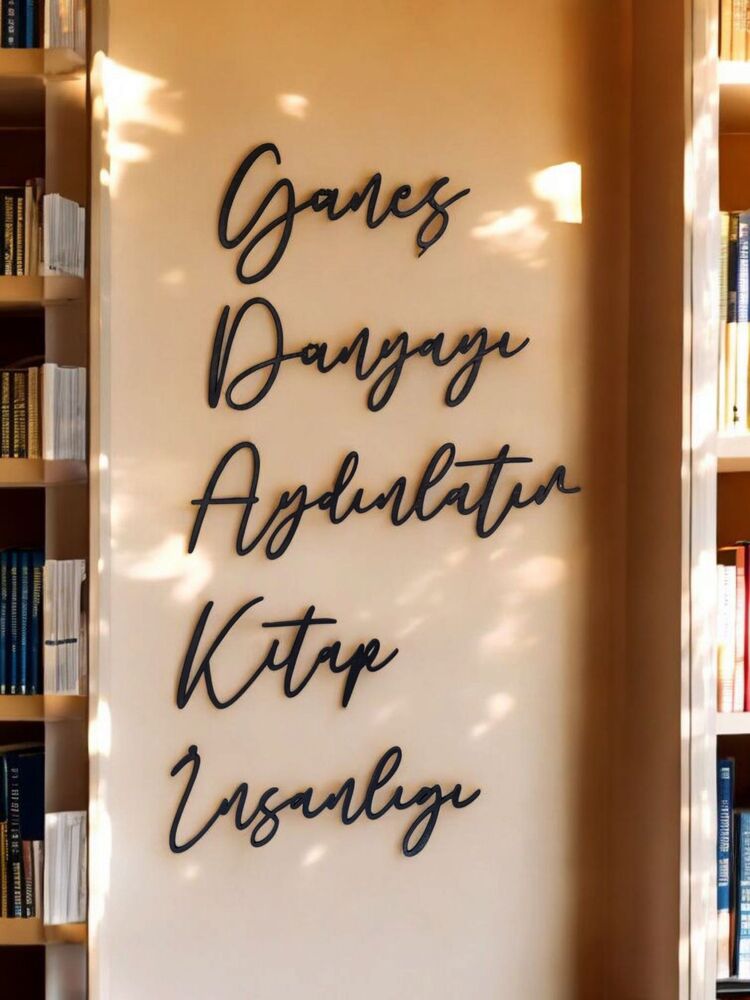 Ganeş
Danyayı
Aydınlatır
Kıtap
Insanlıgı